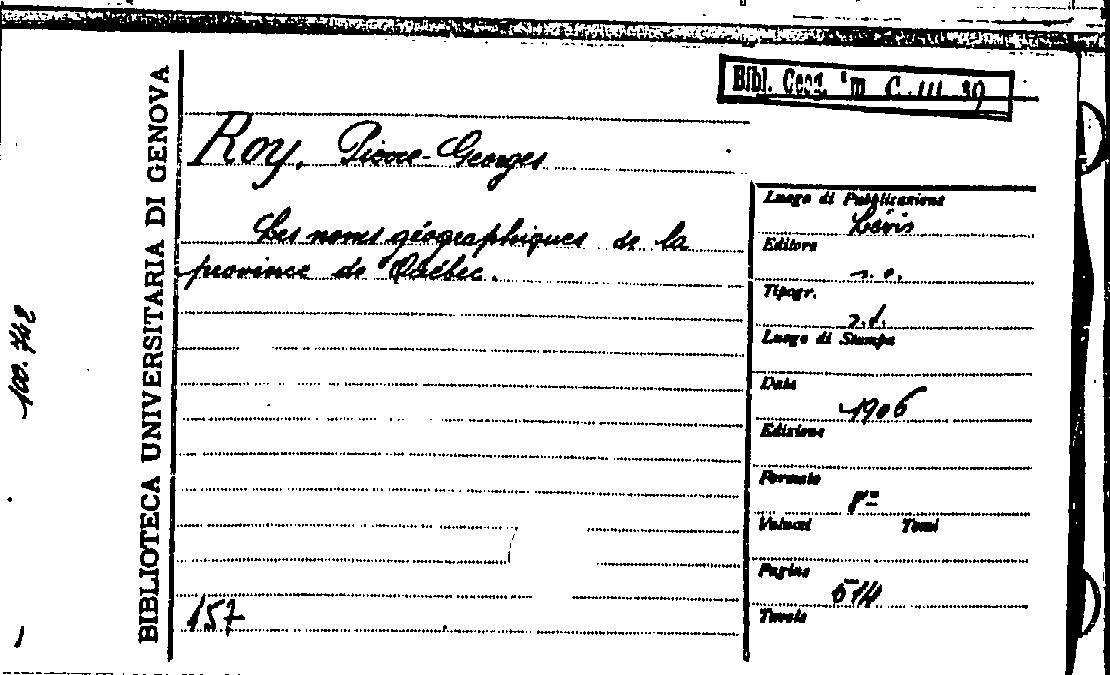 Bibl. Geog. C. III. 39
Roy, Pierre-Georges
Les noms géographiques de la
province de Québec.
157
BIBLIOTECA UNIVERSITARIA DI GENOVA
100.742
Luogo di Pubblicazione
Lévis
Editore
s. e.
Tipogr.
s.t.
Luogo di Stampa
Data
1906
Edizione
Formato
8°
Volumi Tomi
Pagine
514
Tavole